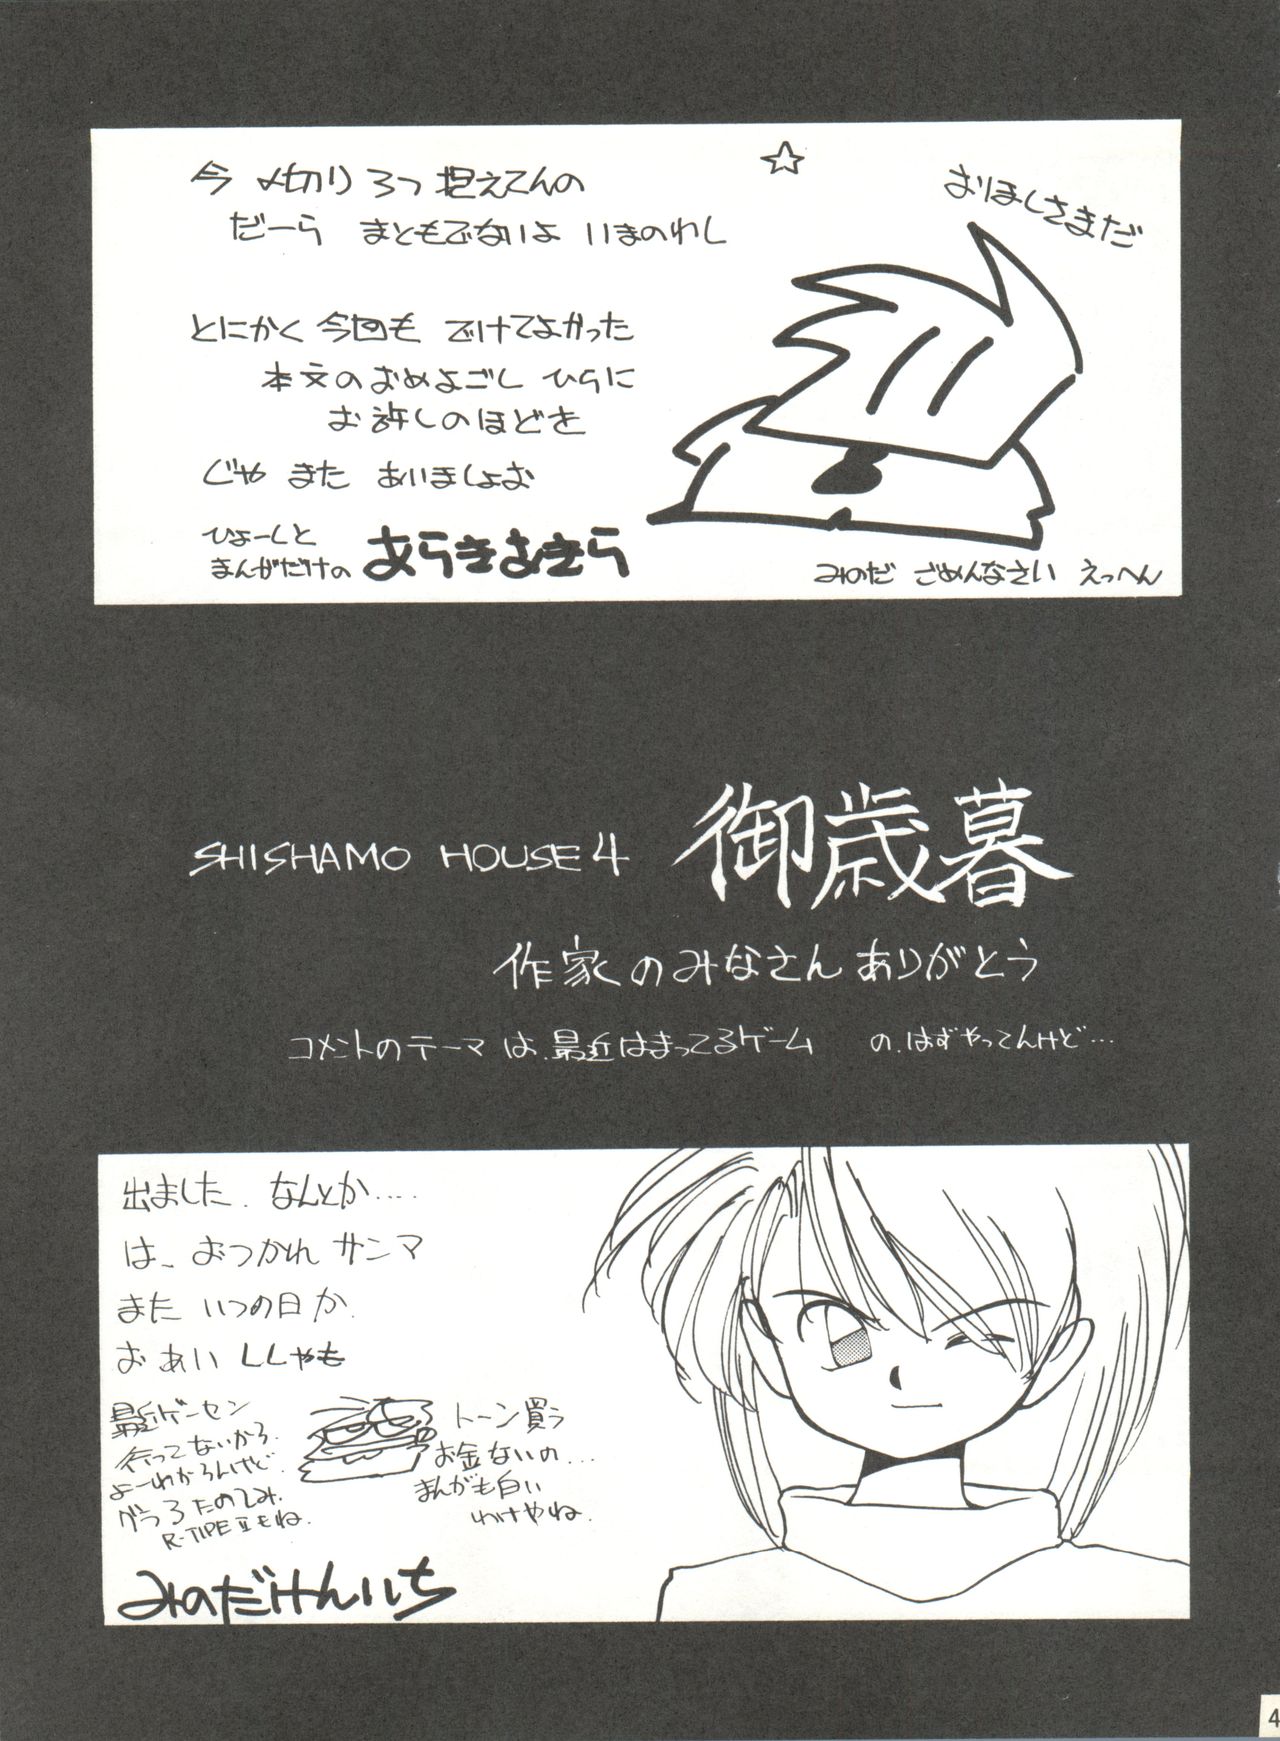 今 〆切り 3つ 抱えてんの
だーら まともでないよ いまのわし
とにかく 今回も でけてよかった
本文のおめよごし ひらに
お許しのほどを
じゃ また あいましょお
ひょーしと
まんがだけの あらきあきら
☆
おほしさまだ
みのだ ごめんなさい えっへん
SHISHAMO HOUSE 4 御歳暮
作家のみなさん ありがとう
コメントのテーマ は、最近はまってるゲーム の、はずやってんけど…
出ました、なんとか....
は、おつかれ サンマ
また いつの日か、
お あい ししゃも
最近ゲーセン
行ってないから、
よーわからんけど、
グラ3たのしみ、
R-TIPE IIもね、
トーン買う
お金ないの...
まんがも白い
わけやね、
みのだけんいち
4